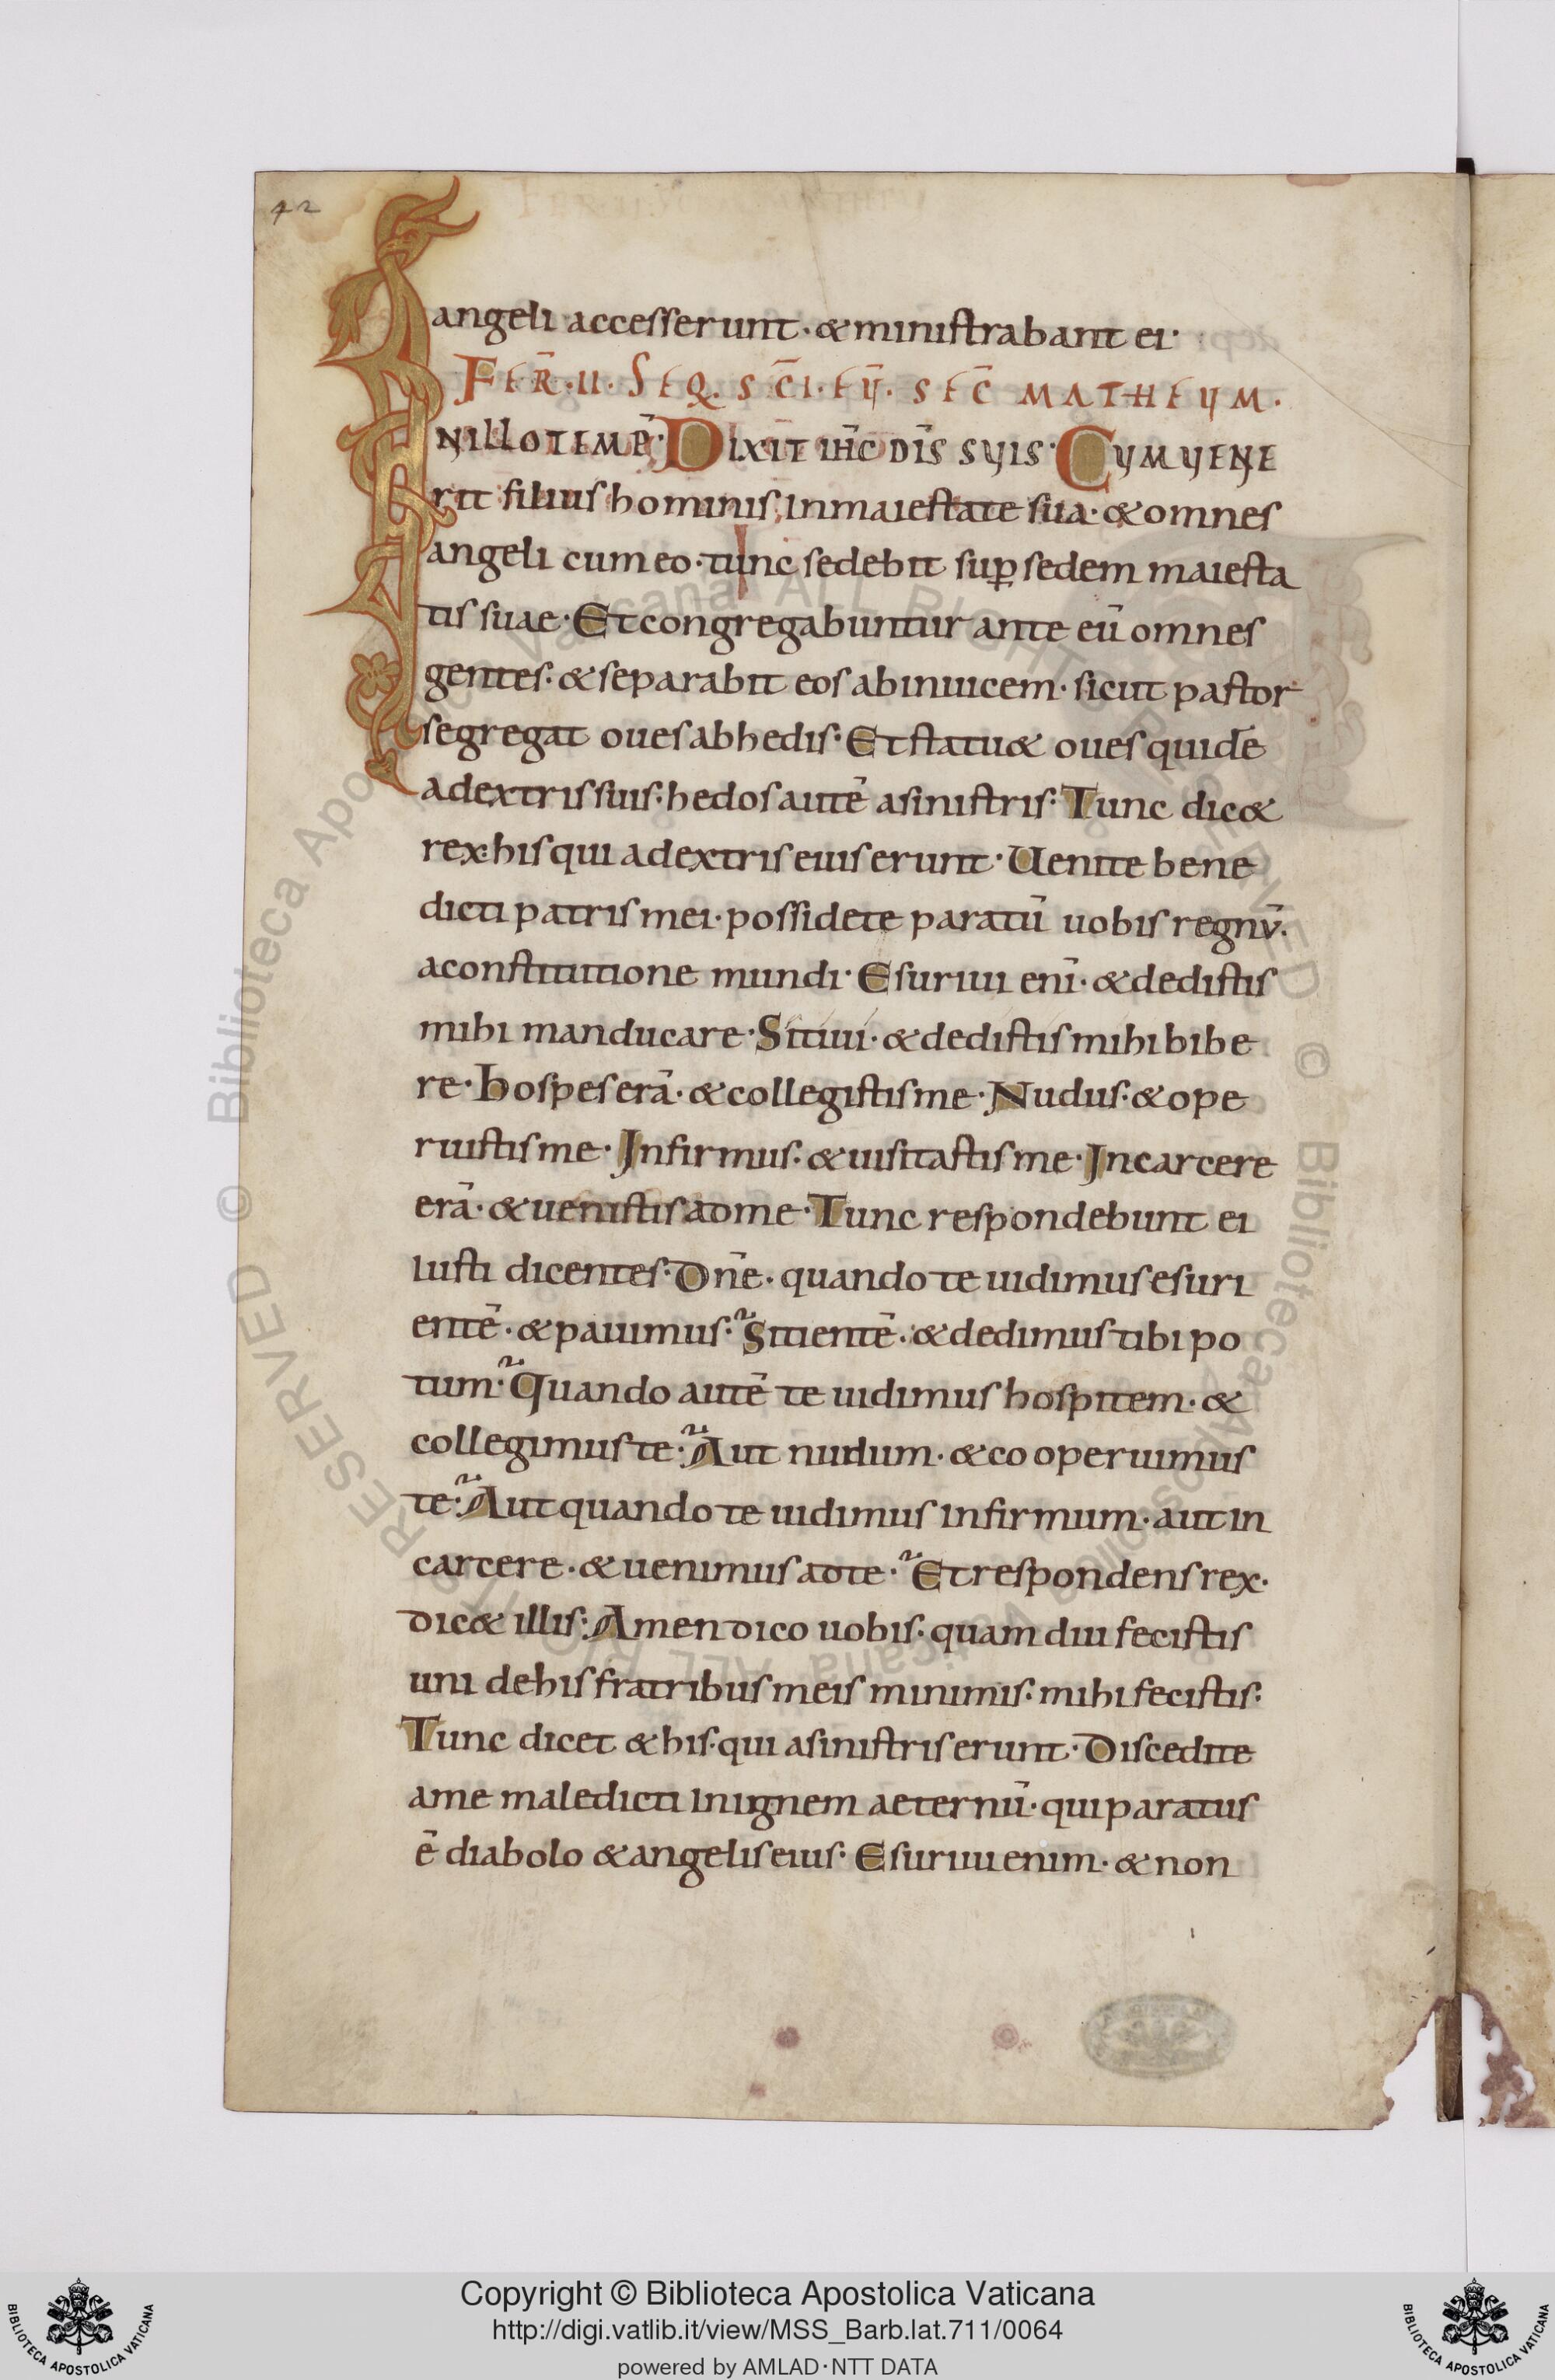 42
angeli accesserunt· & ministrabant ei·
FER̄·II· SEQ. SC̄I· EŪ. SEC̄ MATHEUM·
INILLOTEMP̄· DIXIT IH̄C DIS̄ SUIS· CUMUENE
rit filius hominis inmaiestate sua· & omnes
angeli cum eo· tunc sedebit suꝑ sedem maiesta
tis suae· Et congregabuntur ante eū omnes
gentes· & separabit eos abinuicem· sicut pastor
segregat oues abhedis· Et statu& oues quidē
adextris suis· hedos autē asinistris· Tunc dic&
rex his qui adextris eius erunt· Uenite bene
dicti patris mei· possidete paratū uobis regnū·
aconstitutione mundi· Esuriui enī· & dedistis
mihi manducare· Sitiui· & dedistis mihi bibe
re· Hospes erā· & collegistis me· Nudus· & ope
ruistis me· Infirmus· & uisitastis me· Incarcere
erā· & uenistis adme· Tunc respondebunt ei
iusti dicentes· Dn̄e· quando te uidimus esuri
entē· & pauimus· Sitientē· & dedimus tibi po
tum· Quando autē te uidimus hospitem· &
collegimus te· Aut nudum· & cooperuimus
te· Aut quando te uidimus infirmum· aut in
carcere· & uenimus adte· Et respondens rex·
dic& illis· Amen dico uobis· quam diu fecistis
uni dehis fratribus meis minimis· mihi fecistis·
Tunc dicet & his· qui asinistris erunt· Discedite
ame maledicti inignem aeternū· qui paratus
ē diabolo & angelis eius· Esuriui enim· & non
© Biblioteca Apostolica Vaticana ALL RIGHTS RESERVED
© Biblioteca Apostolica Vaticana ALL RIGHTS RESERVED
Copyright © Biblioteca Apostolica Vaticana
http://digi.vatlib.it/view/MSS_Barb.lat.711/0064
powered by AMLAD·NTT DATA
BIBLIOTECA APOSTOLICA VATICANA
BIBLIOTECA APOSTOLICA VATICANA